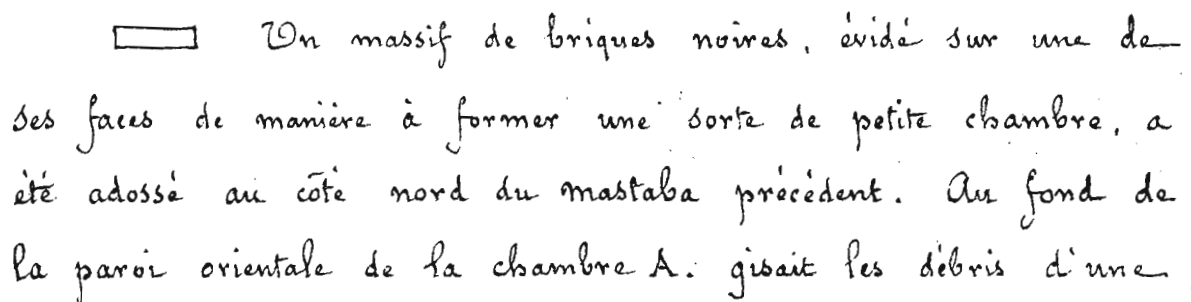 Un massif de briques noires, évidé sur une de
ses faces de manière à former une sorte de petite chambre, a
été adossé au côté nord du mastaba précédent. Au fond de
la paroi orientale de la chambre A. gisait les débris d'une